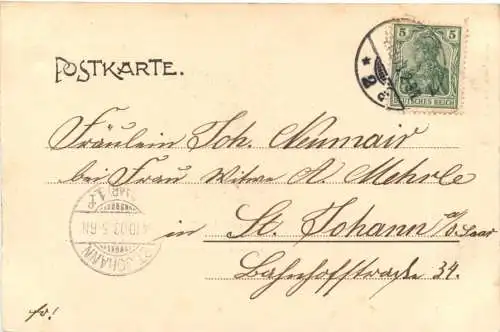 POSTKARTE.
5 5
DEUTSCHES REICH
* 2 c.
Fräulein Joh. Neumair
bei Frau Witwe A. Mehrle
in St. Johann a/d. Saar
Bahnhofstrasse 34.
10.03. 5-6N
ST. JOHANN
fr!